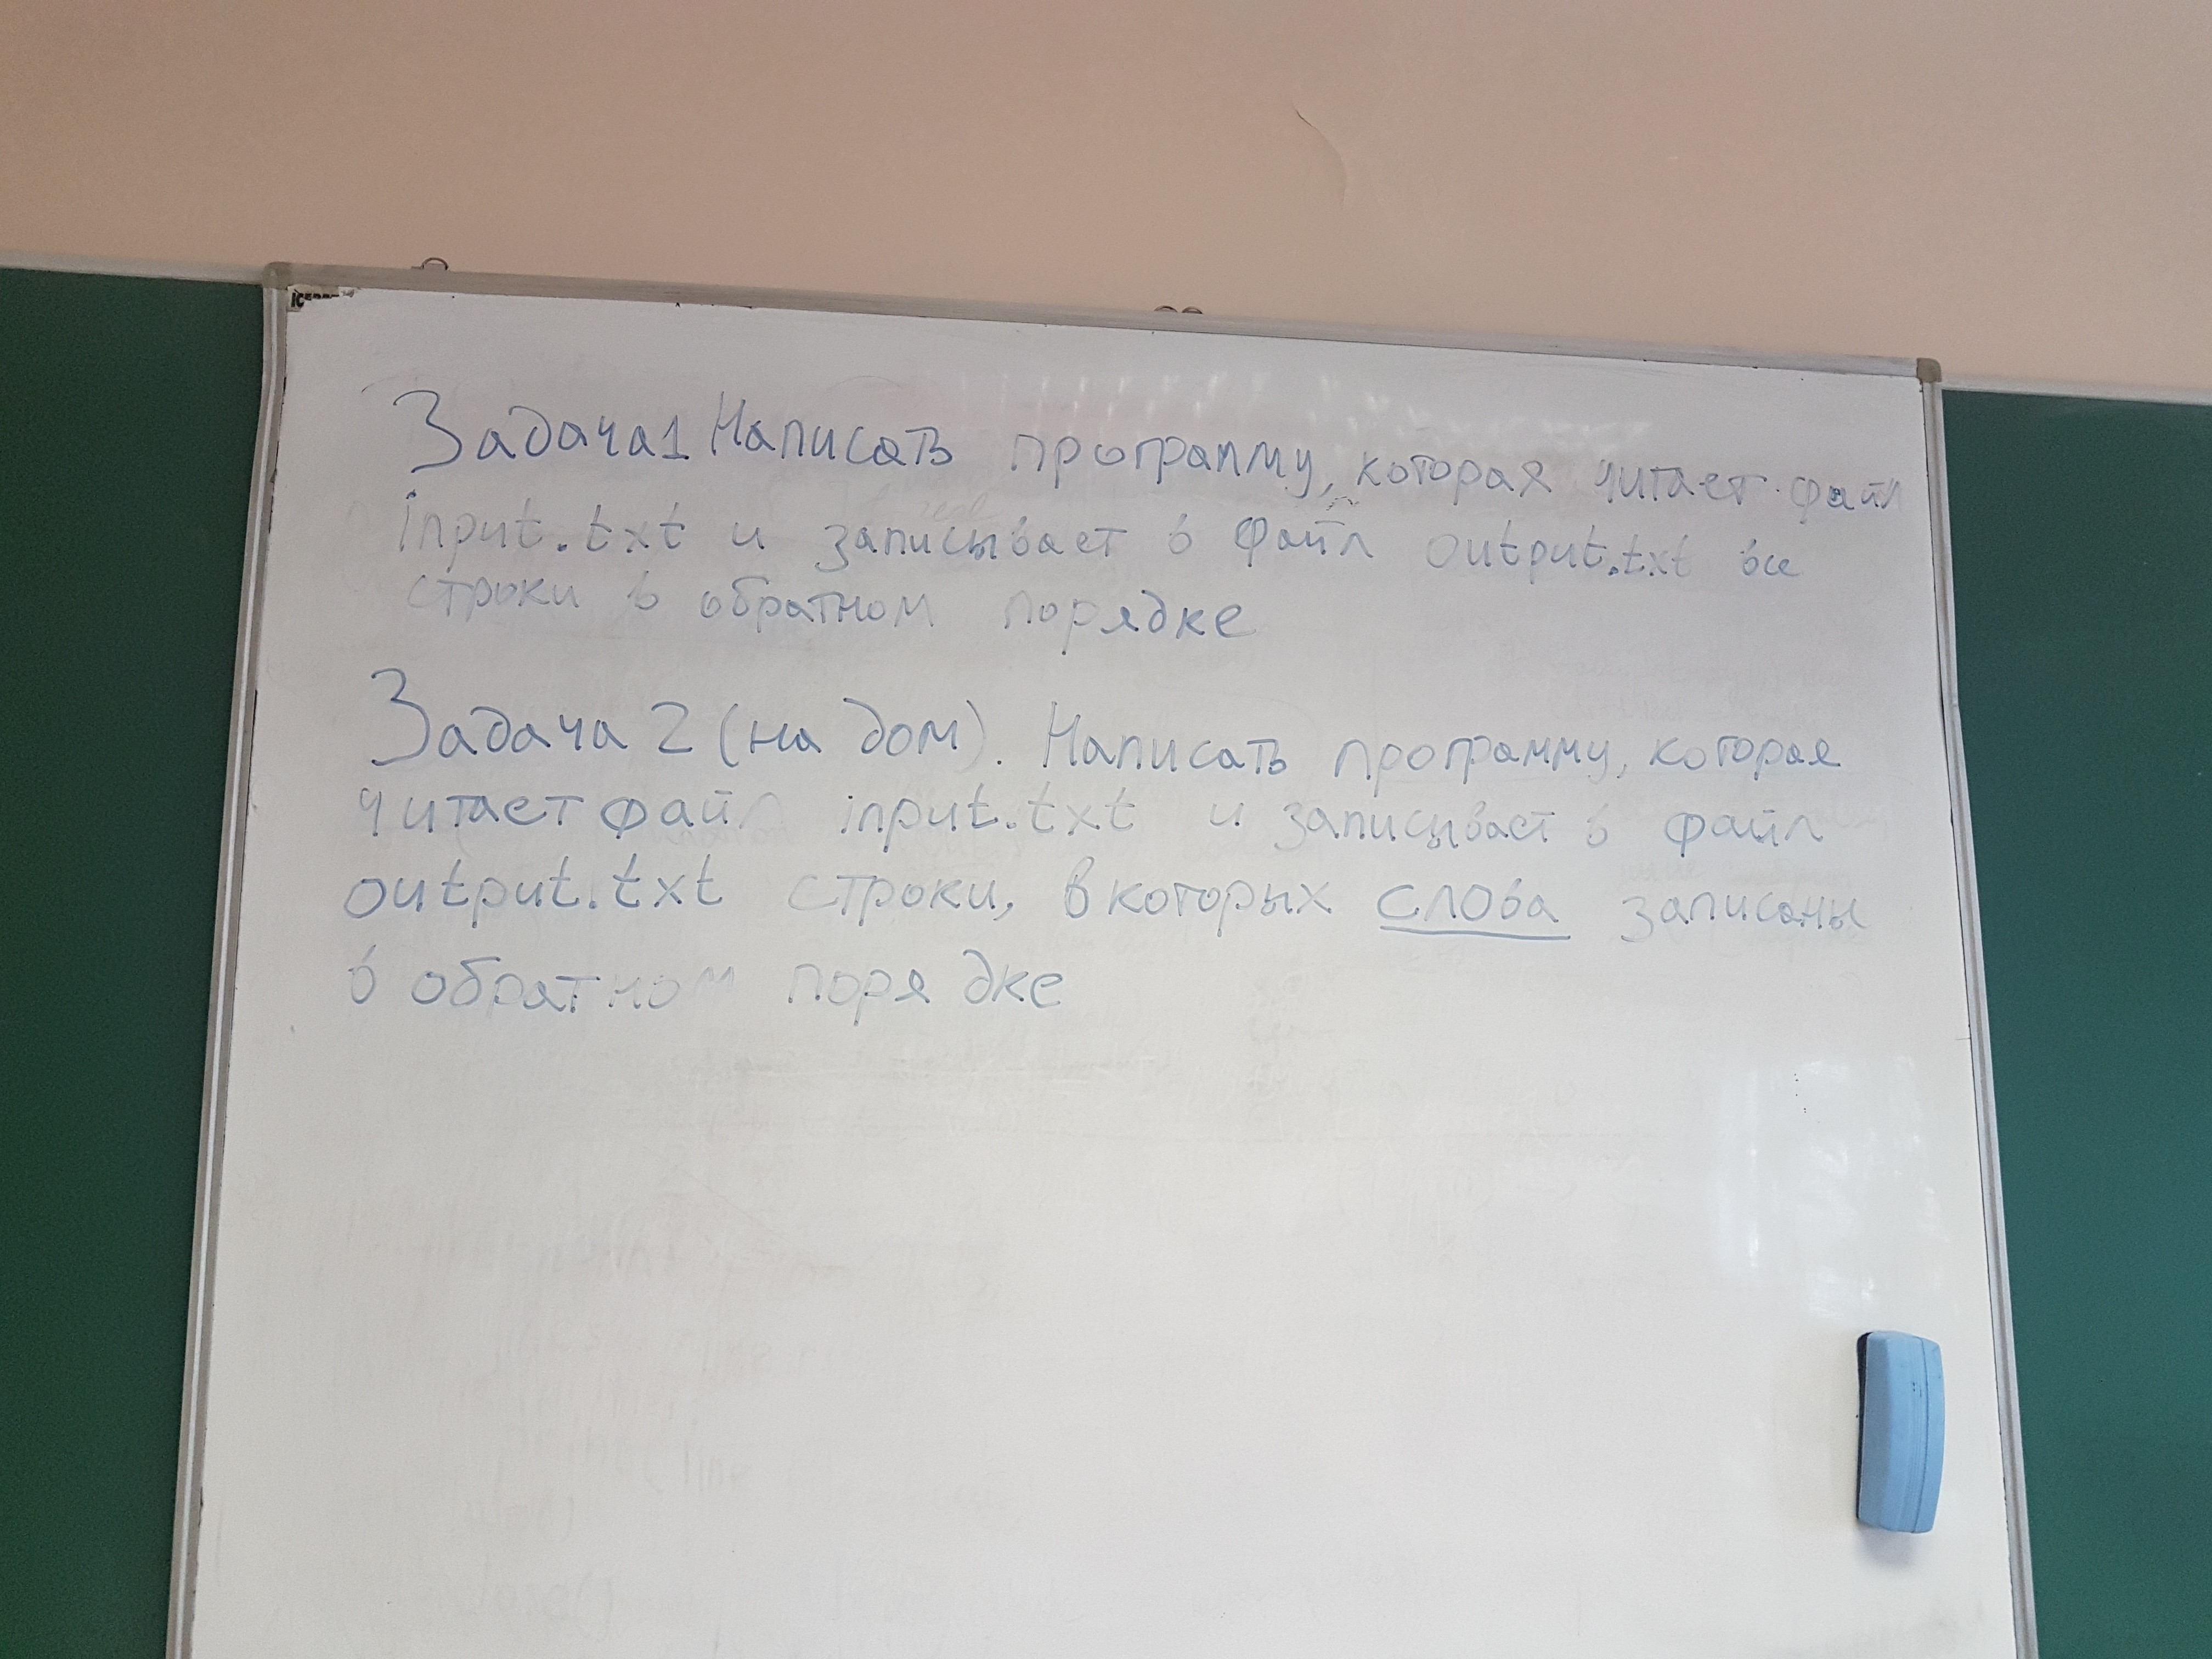 Задача1 Написать программу, которая читает файл
input.txt и записывает в файл output.txt все
строки в обратном порядке
Задача 2 (на дом). Написать программу, которая
читает файл input.txt и записывает в файл
output.txt строки, в которых слова записаны
в обратном порядке